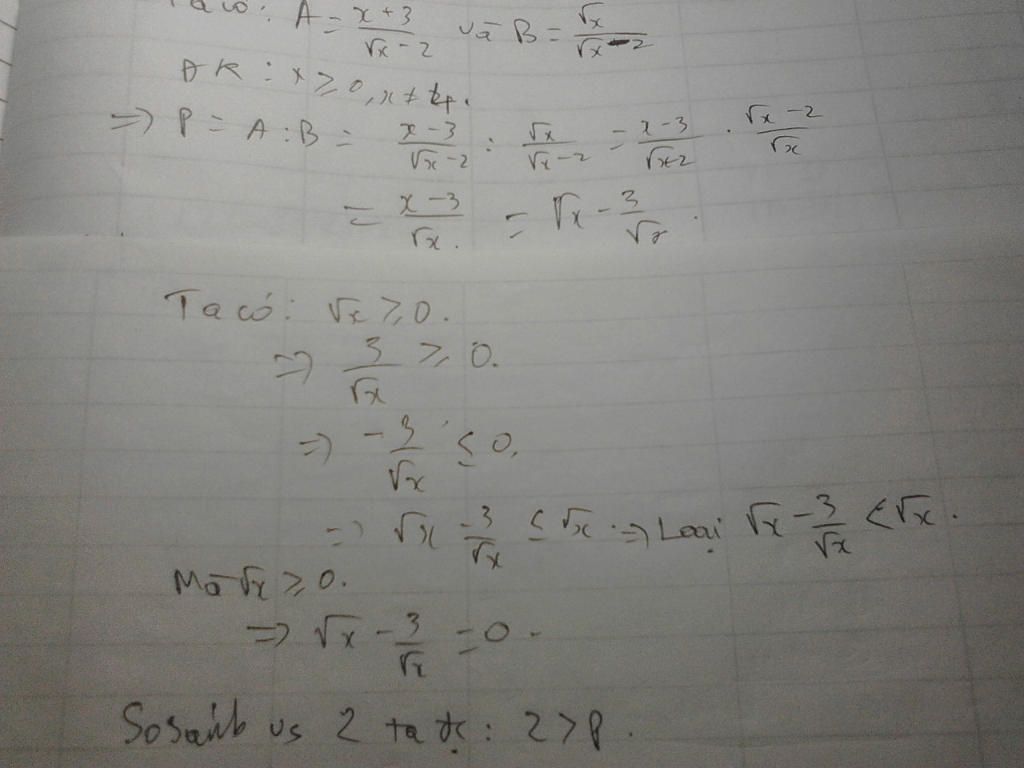 Ta có: A = \frac{x+3}{\sqrt{x}-2} và B = \frac{\sqrt{x}}{\sqrt{x}-2}
ĐK : x ≥ 0, x ≠ 4.
=> P = A : B = \frac{x-3}{\sqrt{x}-2} : \frac{\sqrt{x}}{\sqrt{x}-2} = \frac{x-3}{\sqrt{x}-2} . \frac{\sqrt{x}-2}{\sqrt{x}}
= \frac{x-3}{\sqrt{x}} = \sqrt{x} - \frac{3}{\sqrt{x}}.
Ta có: \sqrt{x} ≥ 0.
=> \frac{3}{\sqrt{x}} ≥ 0.
=> -\frac{3}{\sqrt{x}} ≤ 0,
=> \sqrt{x} - \frac{3}{\sqrt{x}} ≤ \sqrt{x}. => Loại \sqrt{x} - \frac{3}{\sqrt{x}} < \sqrt{x}.
Mà \sqrt{x} ≥ 0.
=> \sqrt{x} - \frac{3}{\sqrt{x}} = 0.
So sánh vs 2 ta đc: 2 > P.